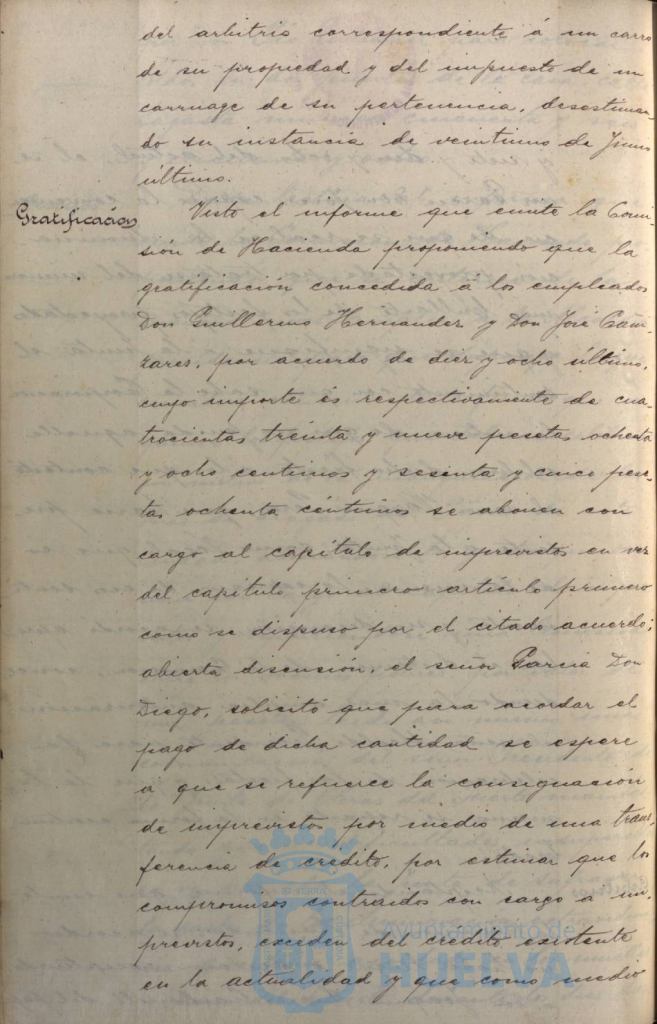 del arbitrio correspondiente á un carro
de su propiedad y del impuesto de un
carruage de su pertenencia, desestiman-
do su instancia de veintiuno de Junio
último.
Gratificación
Visto el informe que emite la Comi-
sión de Hacienda proponiendo que la
gratificación concedida á los empleados
Don Guillermo Hernandez y Don José Cañi-
zares, por acuerdo de diez y ocho último,
cuyo importe és respectivamente de cua-
trocientas treinta y nueve pesetas ochenta
y ocho centimos y sesenta y cinco pese-
tas ochenta céntimos se abonen con
cargo al capítulo de imprevistos en vez
del capitulo primero artículo primero
como se dispuso por el citado acuerdo;
abierta discusión, el señor Garcia Don
Diego, solicitó que para acordar el
pago de dicha cantidad se espere
a que se refuerce la consignación
de imprevistos por medio de una trans-
ferencia de crédito, por estimar que los
compromisos contraidos con cargo a im-
previstos, exceden del credito existente
en la actualidad y que como medio
Ayuntamiento de
HUELVA